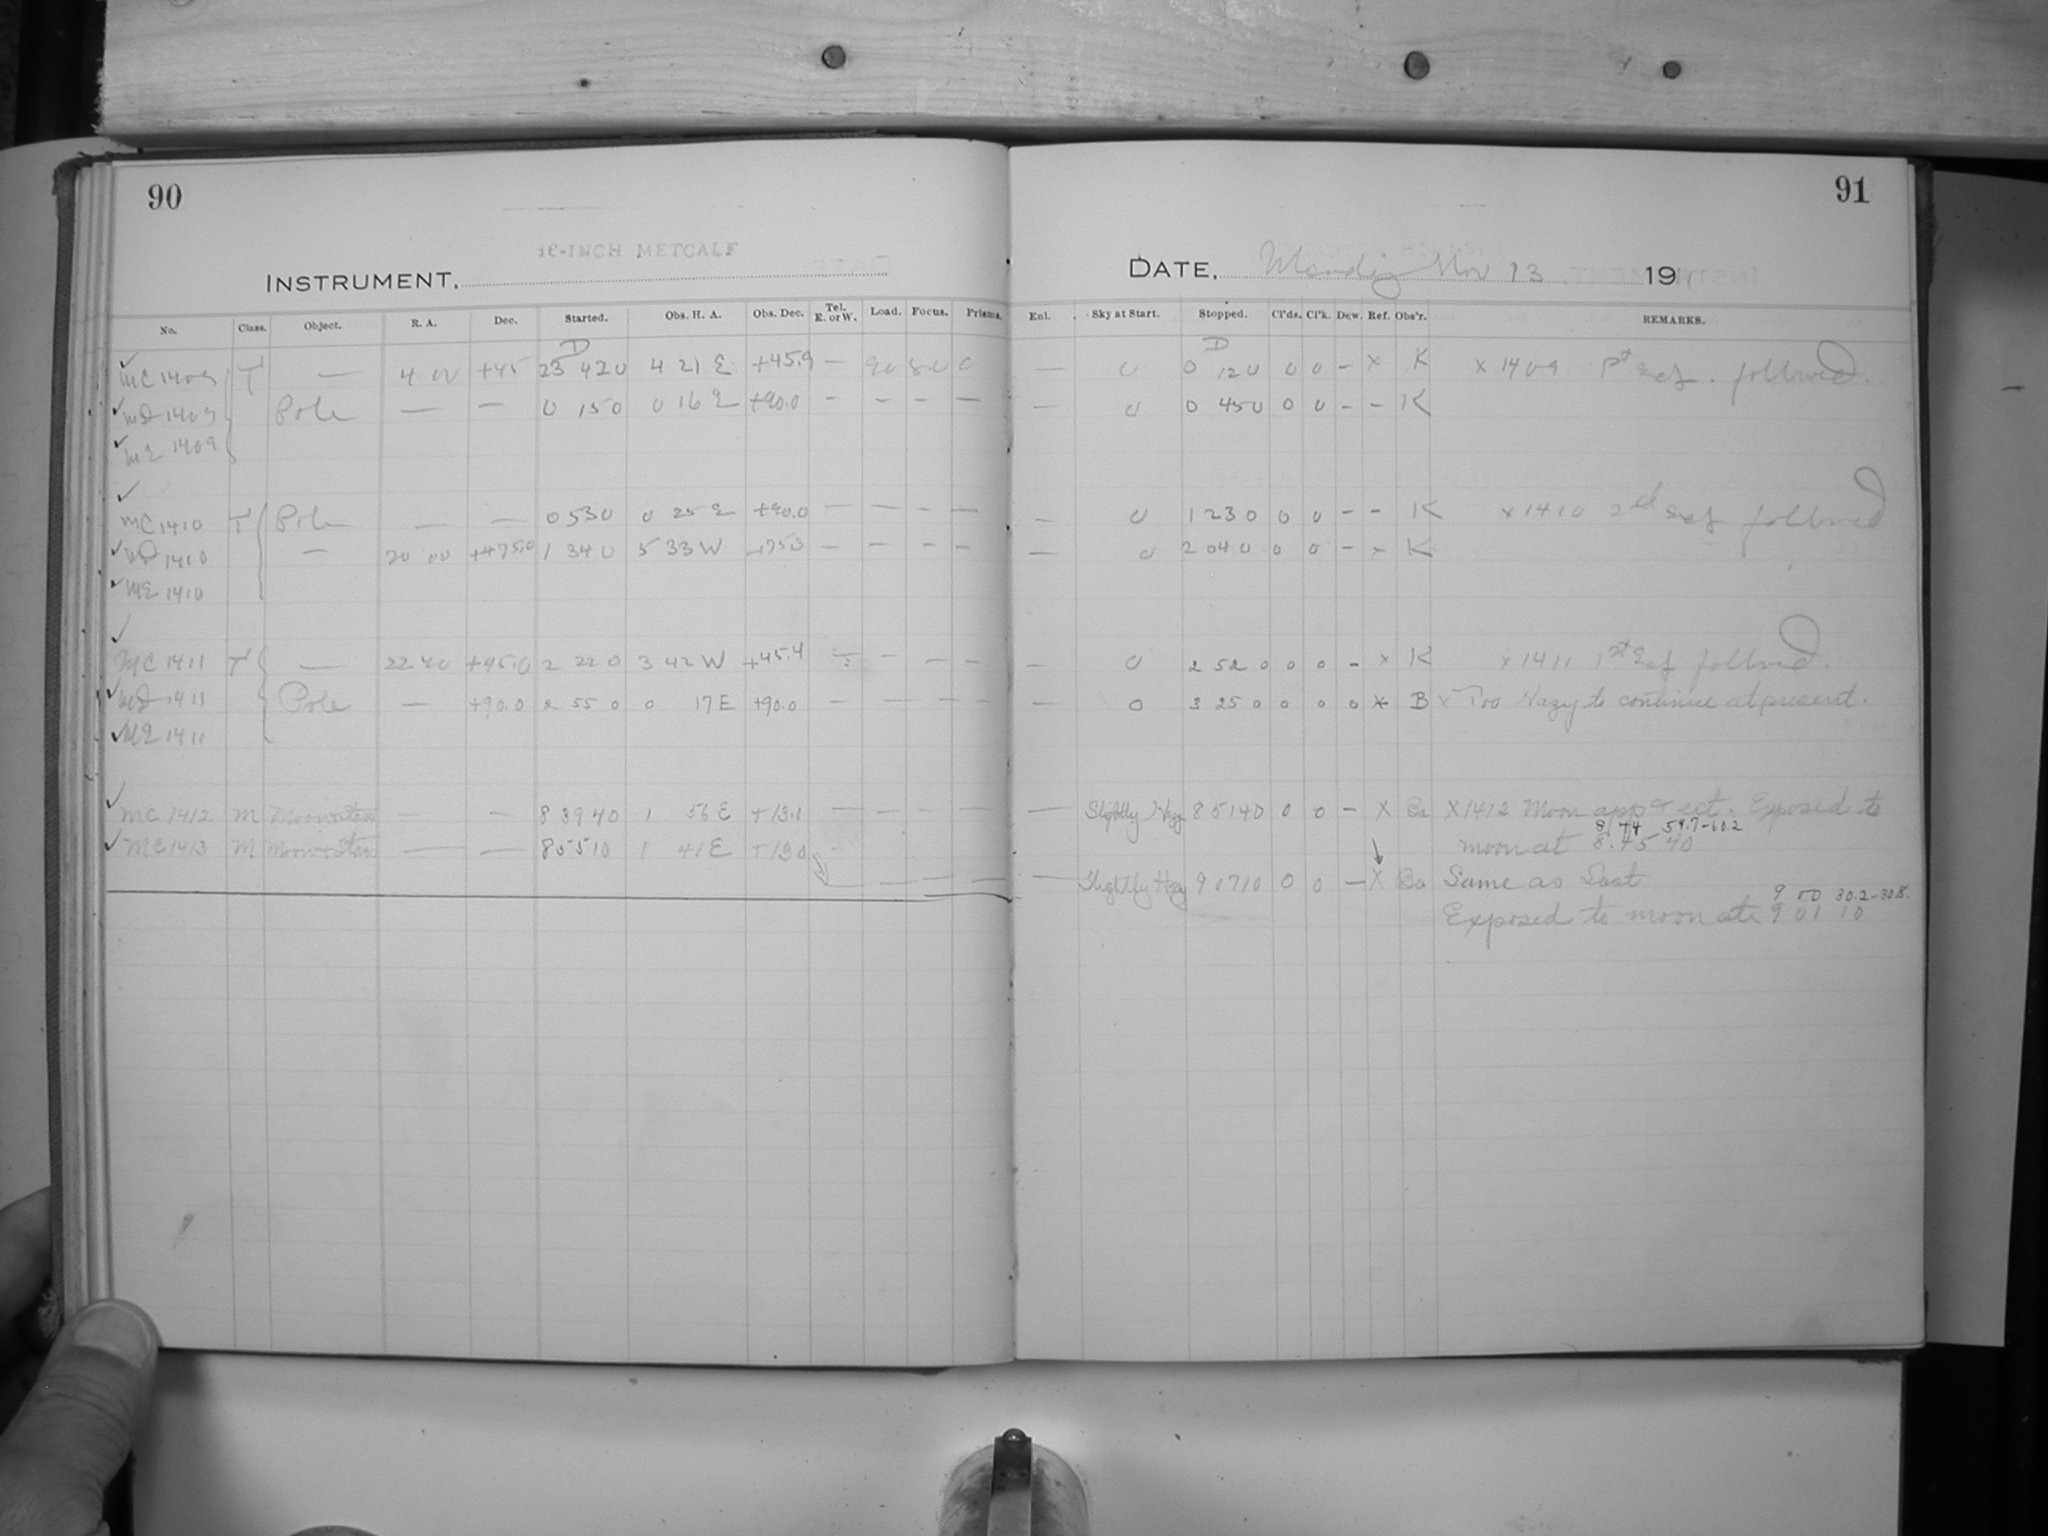 90
16-INCH METCALF
INSTRUMENT,
No. Class. Object. R. A. Dec. Started. Obs. H. A. Obs. Dec. Tel. E. or W. Load. Focus. Prisms.
D
MC 1409 T — 4 00 +45 23 42 0 4 21 E +45.9 —
MD 1409 Pole — — 0 15 0 0 16 E +90.0 — — — — —
ME 1409
MC 1410 T Pole — — 0 53 0 0 25 E +90.0 — — — — —
MD 1410 — 20 00 1 34 0 5 33 W — — — — —
ME 1410
MC 1411 T — 22 40 +45.0 2 22 0 3 42 W +45.4 — — — —
MD 1411 Pole — +90.0 2 55 0 0 17 E +90.0 — — — — —
ME 1411
MC 1412 M Moon + Stars — — 8 39 40 1 56 E +13.0 — — — — —
MC 1413 M Moon + Stars — — 8 55 10 1 41 E +13.0 — — — —
91
DATE, Monday Nov 13 1911
Enl. Sky at Start. Stopped. Cl'ds. Cl'k. Dew. Ref. Obs'r. REMARKS.
D
— 0 0 12 0 0 0 – x K x 1409 1st Exp. followed.
— 0 0 45 0 0 0 – – K
— 0 1 23 0 0 0 – – K x 1410 2nd Exp followed
— 0 2 04 0 0 0 – x K
— 0 2 52 0 0 0 – x K x 1411 1st Exp followed.
— 0 3 25 0 0 0 0 x B x Too Hazy to continue at present.
— Slightly Hazy 8 51 40 0 0 – X Ca X 1412 Moon app Exposed to
8 44 59.7–60.2
moon at 8.45 40
— Slightly Hazy 9 07 10 0 0 – X Ca Same as Last
9 00 30.2–30.8
Exposed to moon at 9 01 10